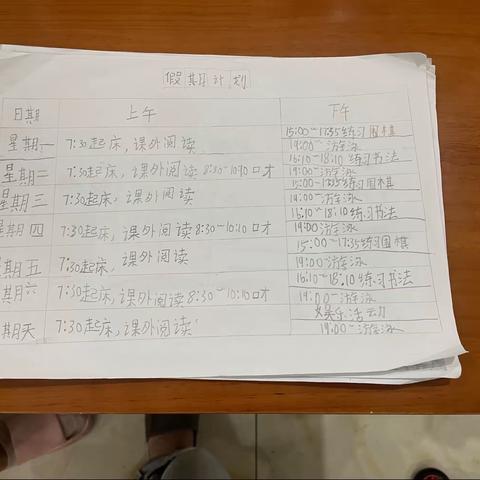 假期计划
日期 上午 下午
星期一 7:30起床,课外阅读 15:00~17:35练习围棋
19:00~游泳
星期二 7:30起床,课外阅读 8:30~10:10口才 16:10~18:10练习书法
19:00~游泳
星期三 7:30起床,课外阅读 15:00~17:35练习围棋
19:00~游泳
星期四 7:30起床,课外阅读 8:30~10:10口才 16:10~18:10练习书法
19:00游泳
星期五 7:30起床,课外阅读 15:00~17:35练习围棋
19:00~游泳
期六 7:30起床,课外阅读 8:30~10:10口才 16:10~18:10练习书法
19:00~游泳
期天 7:30起床,课外阅读 娱乐活动
19:00~游泳